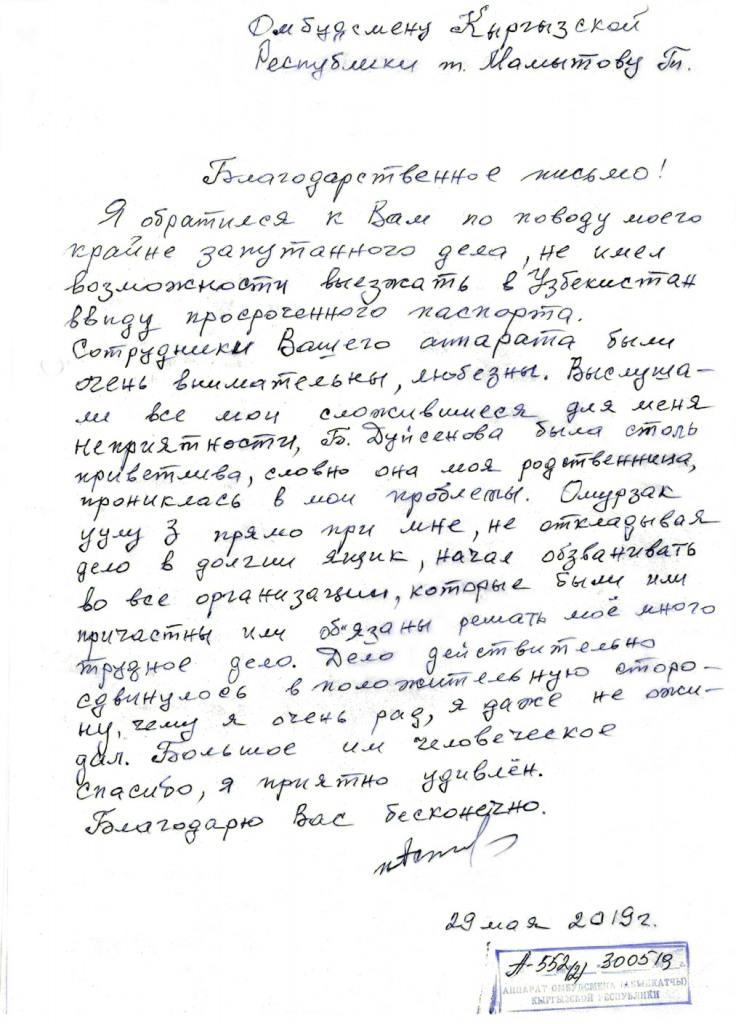 Омбудсмену Кыргызской
Республики т. Мамытову Тп.
Благодарственное письмо!
Я обратился к Вам по поводу моего
крайне запутанного дела, не имел
возможности выезжать в Узбекистан
ввиду просроченного паспорта.
Сотрудники Вашего аппарата были
очень внимательны, любезны. Выслуша-
ли все мои сложившиеся для меня
неприятности, Б. Дуйсенова была столь
приветлива, словно она моя родственница,
прониклась в мои проблемы. Омурзак
уулу З прямо при мне, не откладывая
дело в долгий ящик, начал обзванивать
во все организации, которые были или
причастны или об"язаны решать моё много
трудное дело. Дело действительно
сдвинулось в положительную сторо-
ну, чему я очень рад, я даже не ожи-
дал. Большое им человеческое
спасибо, я приятно удивлён.
Благодарю Вас бесконечно.
29 мая 2019г.
А-552/2) 300519
АППАРАТ ОМБУДСМЕНА (АКЫЙКАТЧЫ)
КЫРГЫЗСКОЙ РЕСПУБЛИКИ